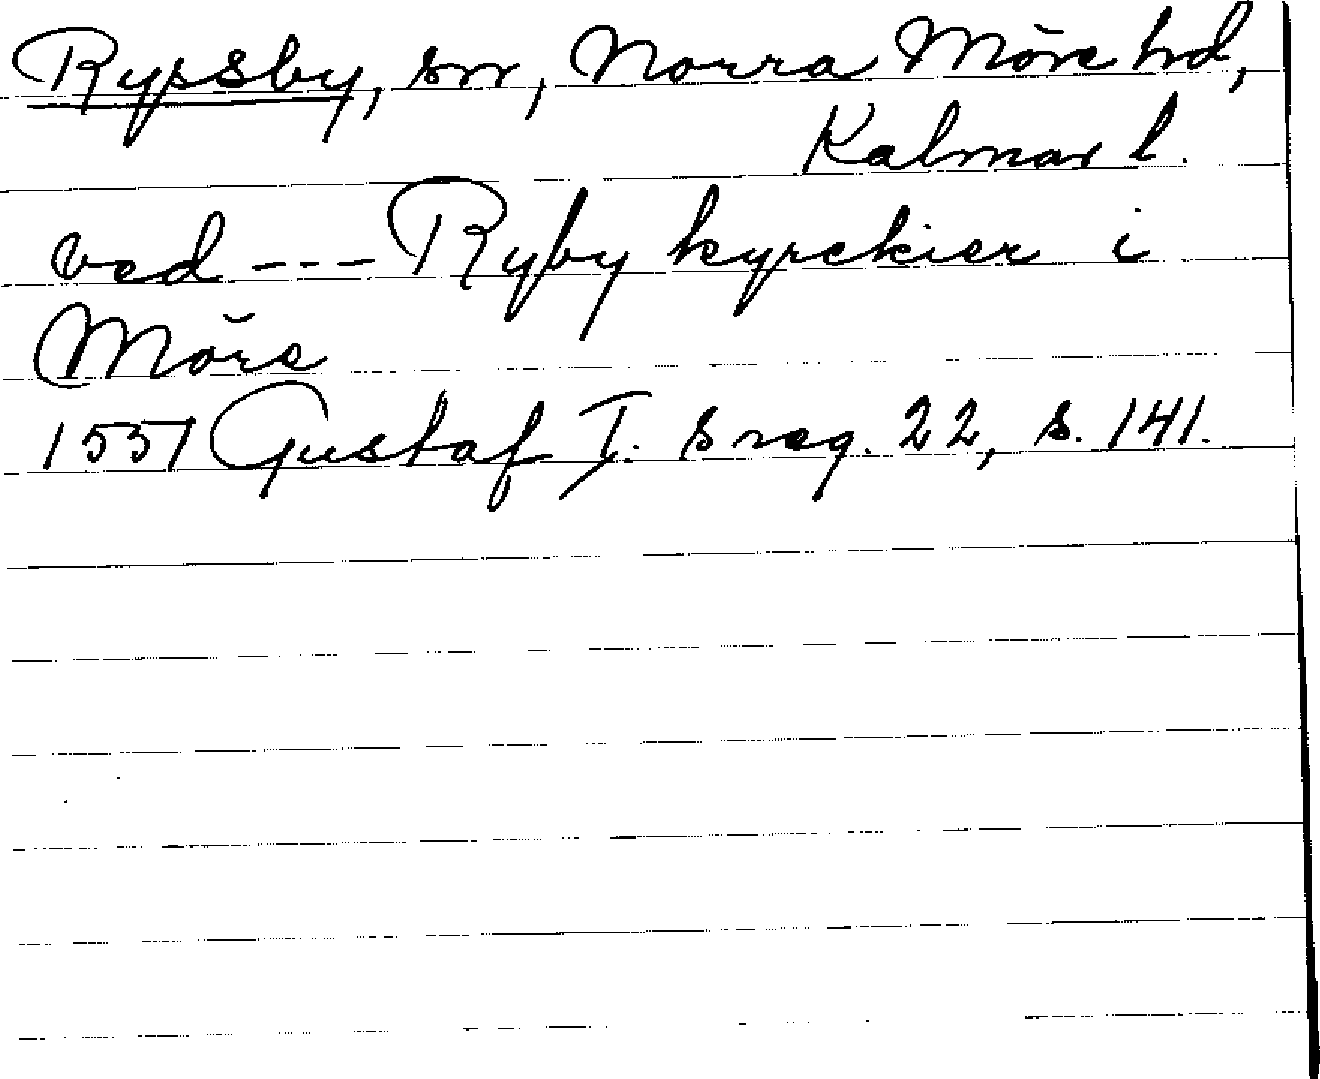 Ryssby, sn, Norra Möre hd,
Kalmar l.
ved --- Ryby kyrckier i
Möre
1551 Gustaf I. s reg. 22, s. 141.